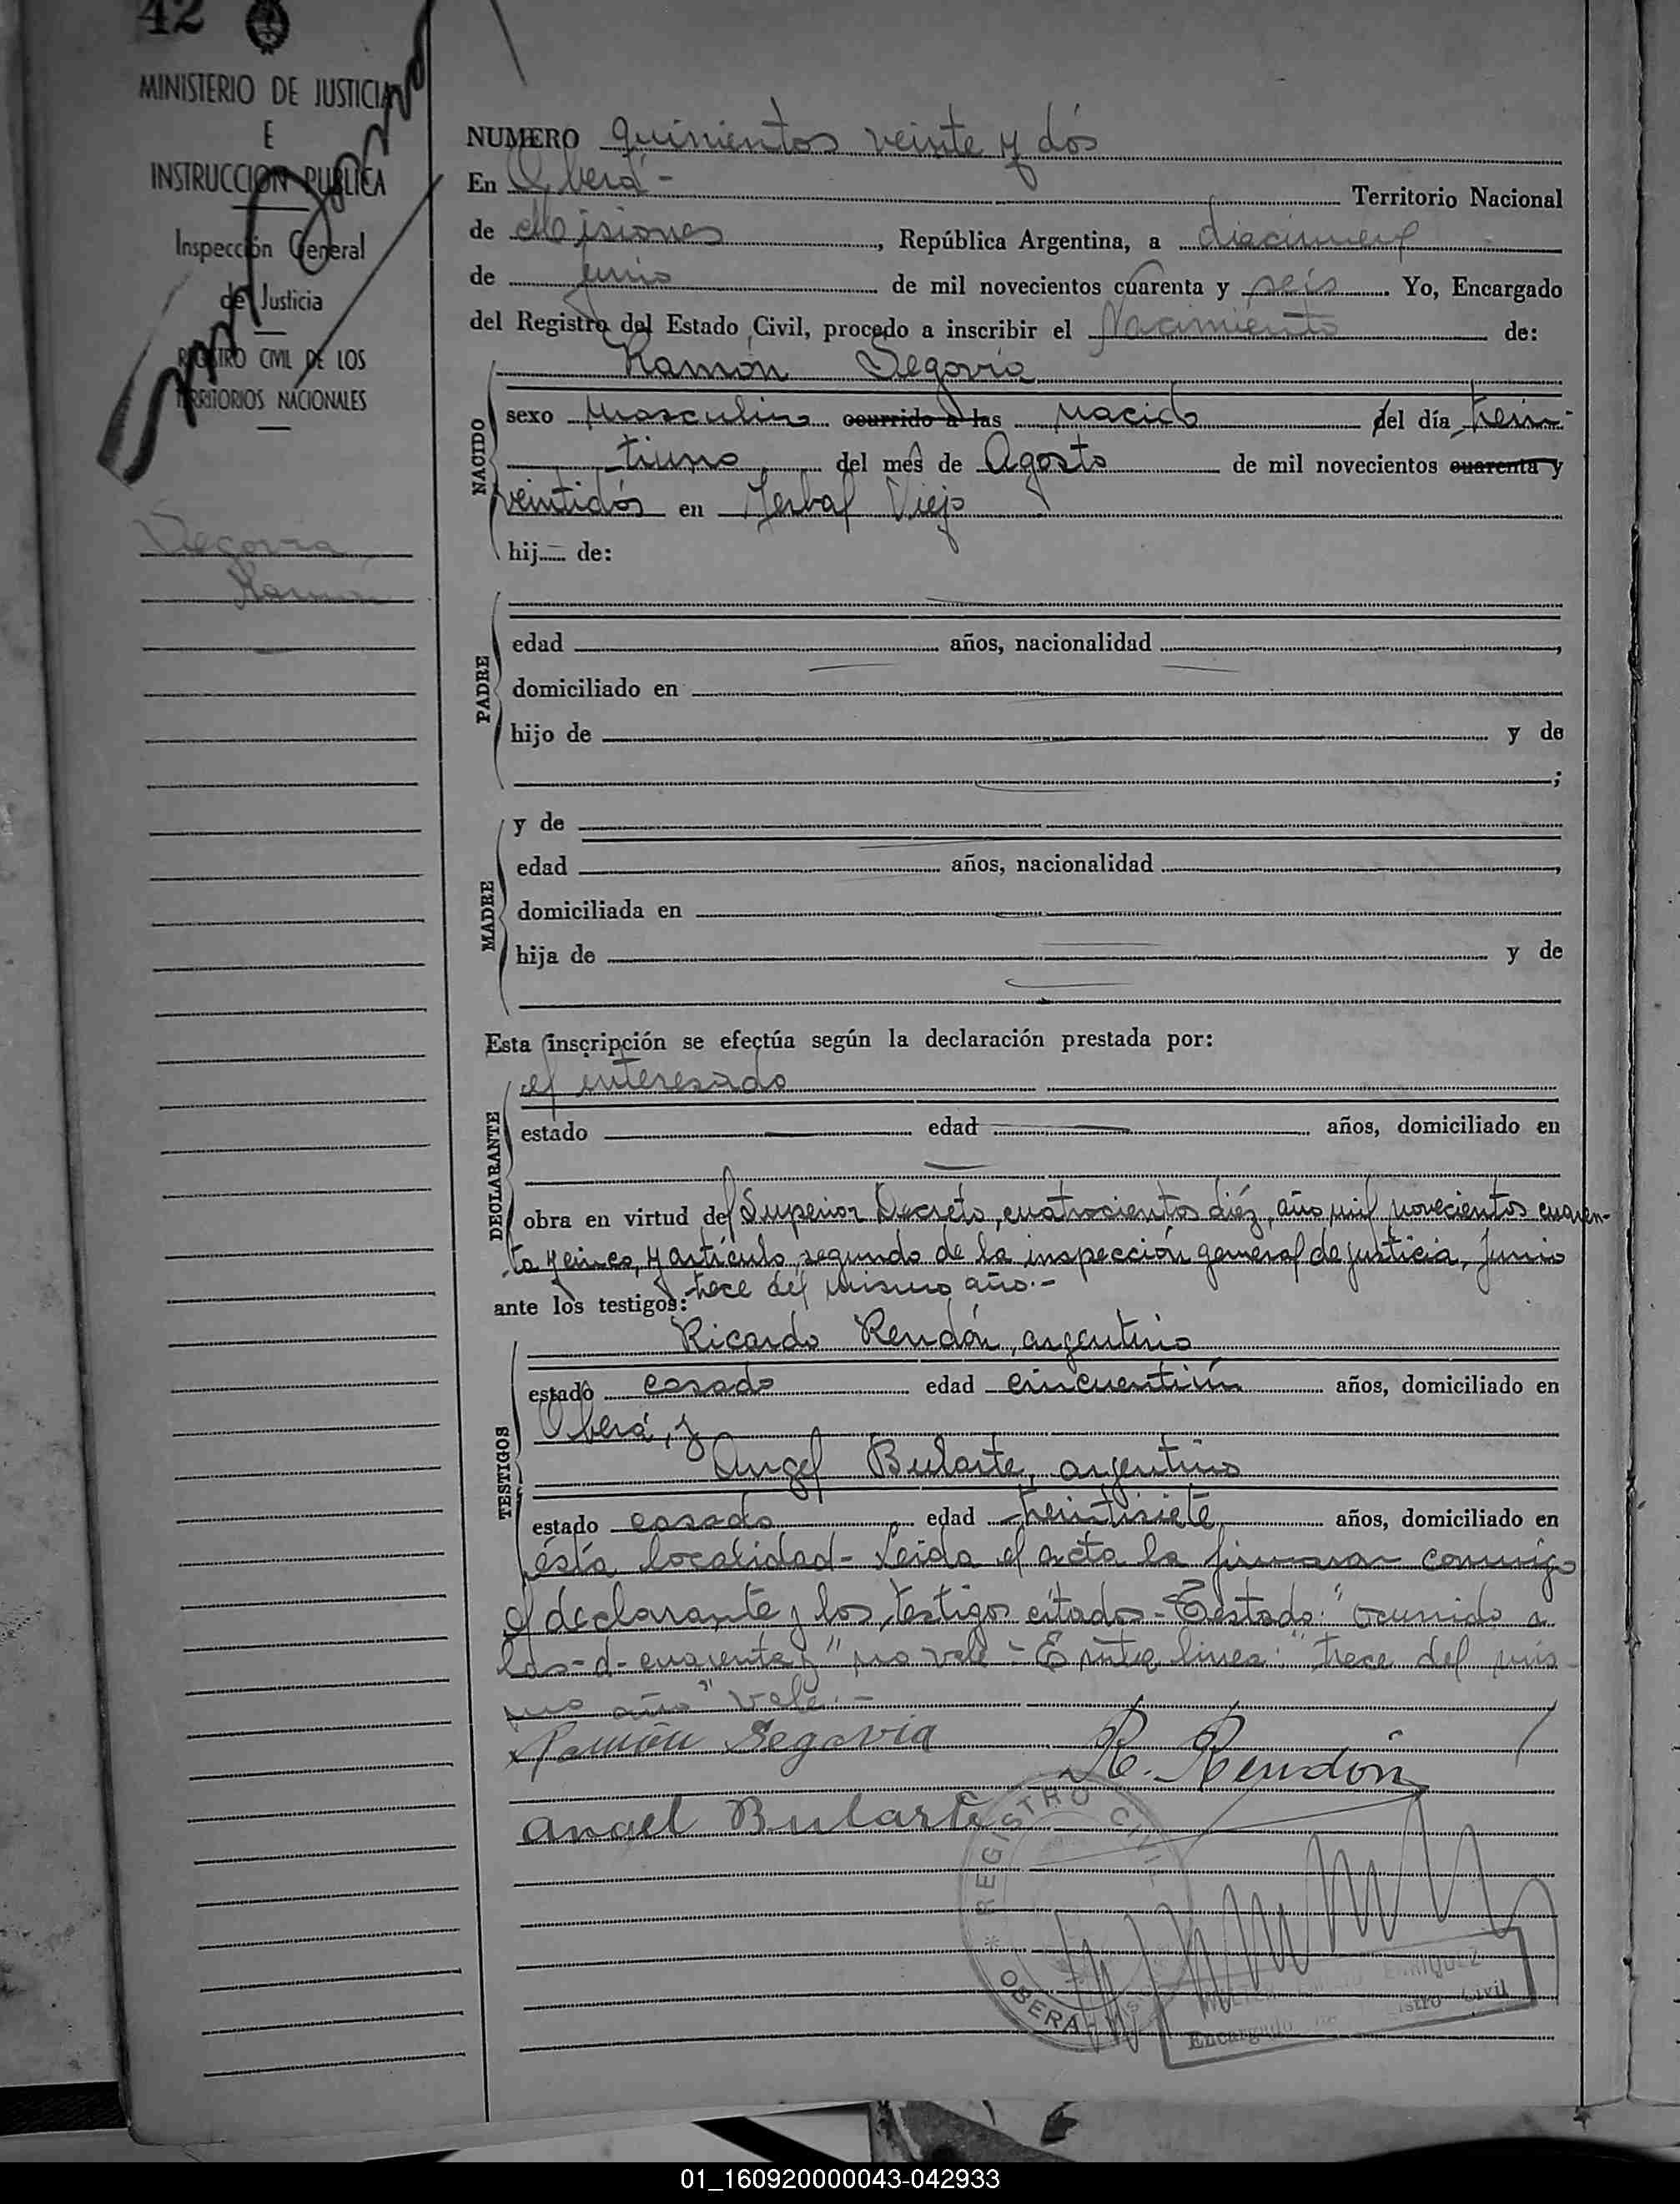 42
MINISTERIO DE JUSTICIA
E
INSTRUCCION PUBLICA
Inspección General
de Justicia
REGISTRO CIVIL DE LOS
TERRITORIOS NACIONALES
Segovia
Ramón
NUMERO quinientos veinte y dós
En Oberá -
Territorio Nacional
de Misiones, República Argentina, a diecinueve
de junio de mil novecientos cuarenta y seis. Yo, Encargado
del Registro del Estado Civil, procedo a inscribir el Nacimiento de:
Ramón Segovia
NACIDO
sexo masculino ocurrido a las nacido del día trein-
tiuno del mes de Agosto de mil novecientos cuarenta y
veintidós en Yerbal Viejo
hij de:
PADRE
edad años, nacionalidad ,
domiciliado en
hijo de y de
;
MADRE
y de
edad años, nacionalidad ,
domiciliada en
hija de y de
Esta inscripción se efectúa según la declaración prestada por:
DECLARANTE
el interesado
estado edad años, domiciliado en
obra en virtud del Superior Decreto, cuatrocientos diéz, año mil novecientos cuaren-
ta y cinco, y artículo segundo de la inspección general de justicia, junio
trece del mismo año.-
ante los testigos:
TESTIGOS
Ricardo Rendón, argentino
estado casado edad cincuentiún años, domiciliado en
Oberá, y
Angel Bularte, argentino
estado casado edad treintisiete años, domiciliado en
ésta localidad- Leida el acta la firmaron conmigo
el declarante y los testigos citados- Testado: "ocurrido a
las-d-cuarenta y" no vale - E ntre linea: "trece del mis
mo año" vale.-
Ramón Segovia
R. Rendón
angel Bularte
REGISTRO CIVIL
* OBERA
ENRIQUEZ
Encargado Registro Civil
01_160920000043-042933